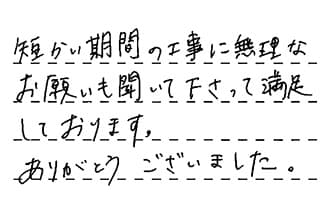 短かい期間の工事に無理な
お願いも聞いて下さって満足
しております。
ありがとうございました。